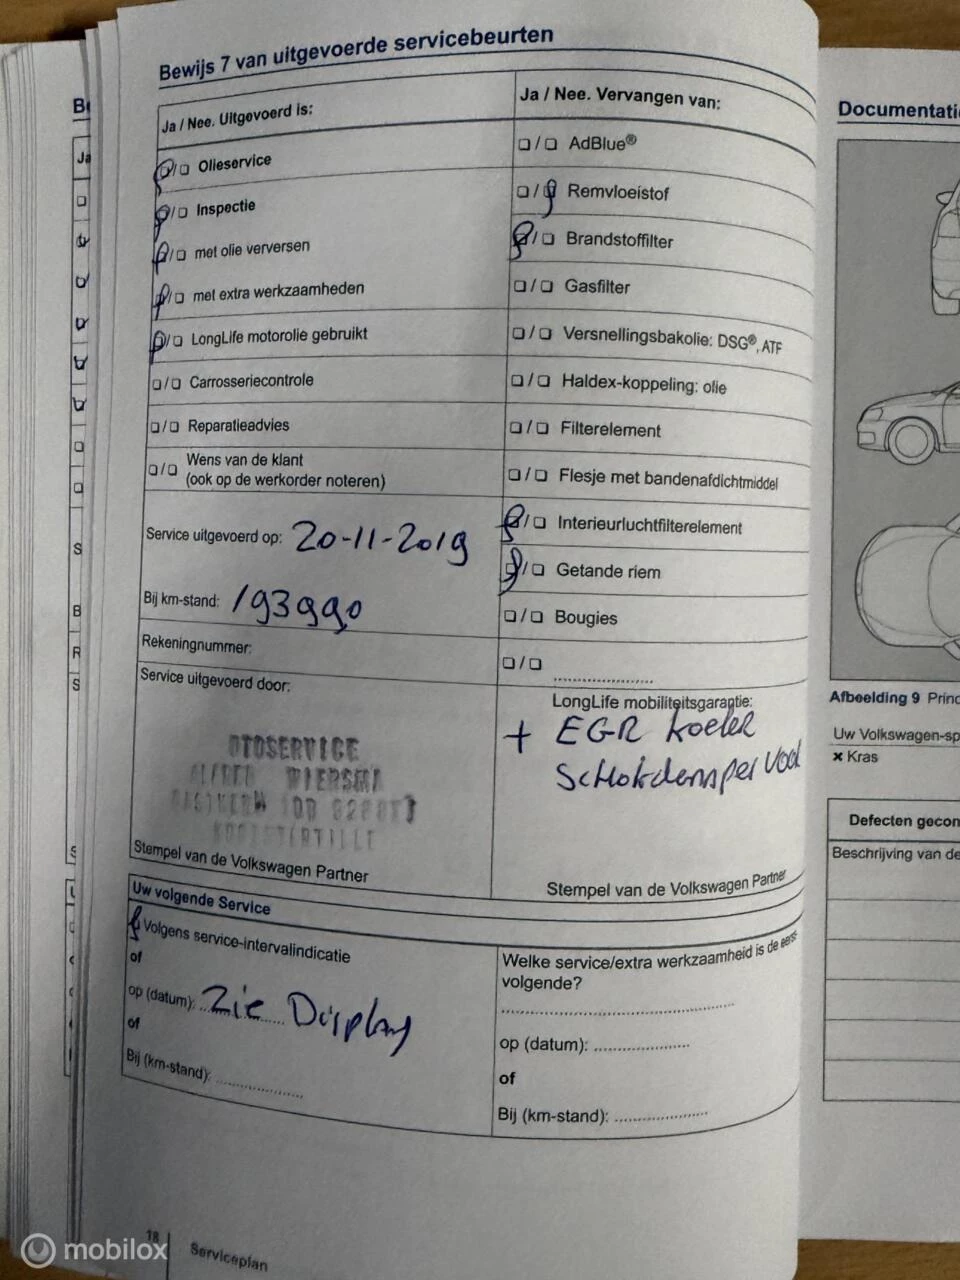 Bewijs 7 van uitgevoerde servicebeurten
Ja / Nee. Uitgevoerd is:
☐/☐ Olieservice
☐/☐ Inspectie
☐/☐ met olie verversen
☐/☐ met extra werkzaamheden
☐/☐ LongLife motorolie gebruikt
☐/☐ Carrosseriecontrole
☐/☐ Reparatieadvies
☐/☐ Wens van de klant
(ook op de werkorder noteren)
Service uitgevoerd op: 20-11-2019
Bij km-stand: 193990
Rekeningnummer:
Service uitgevoerd door:
WIERSMA
Stempel van de Volkswagen Partner
Ja / Nee. Vervangen van:
☐/☐ AdBlue®
☐/☐ Remvloeistof
☐/☐ Brandstoffilter
☐/☐ Gasfilter
☐/☐ Versnellingsbakolie: DSG®, ATF
☐/☐ Haldex-koppeling: olie
☐/☐ Filterelement
☐/☐ Flesje met bandenafdichtmiddel
☐/☐ Interieurluchtfilterelement
☐/☐ Getande riem
☐/☐ Bougies
☐/☐ ....................
LongLife mobiliteitsgarantie:
+ EGR koeler
Schokdemper voor
Stempel van de Volkswagen Partner
Uw volgende Service
Volgens service-intervalindicatie
of
op (datum): Zie Display
of
Bij (km-stand): ....................
Welke service/extra werkzaamheid is de eerst-
volgende?
....................
op (datum): ....................
of
Bij (km-stand): ....................
18
Serviceplan
Documentati
Afbeelding 9 Princ
Uw Volkswagen-sp
× Kras
Defecten gecon
Beschrijving van de
mobilox